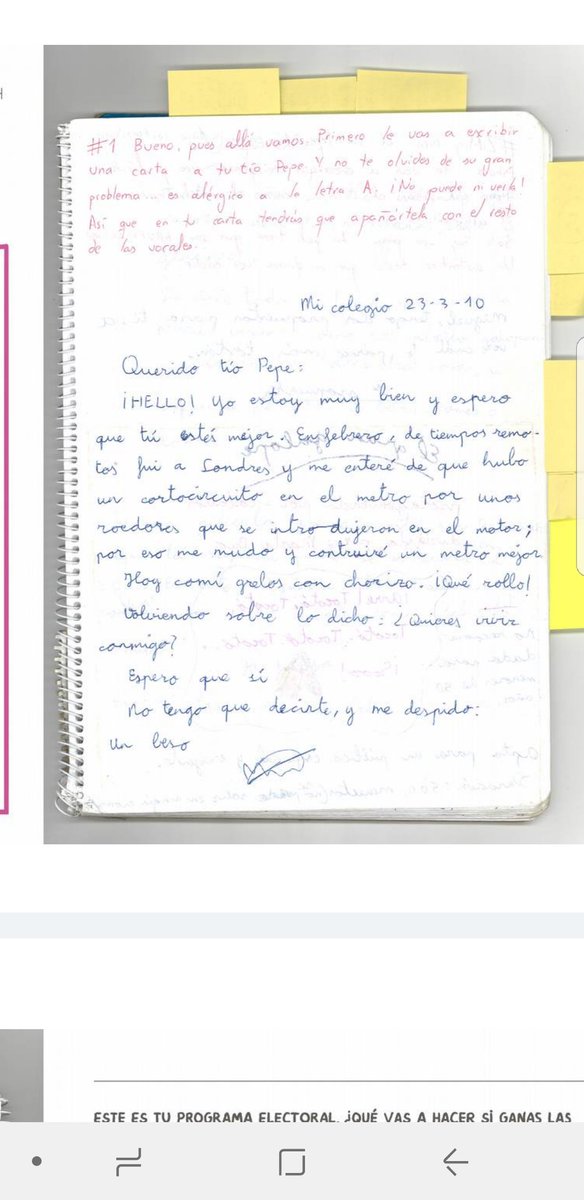 #1 Bueno, pues allá vamos. Primero le vas a escribir
una carta a tu tío Pepe. Y no te olvides de su gran
problema... es alérgico a la letra A. ¡No puede ni verla!
Así que en tu carta tendrás que apañártela con el resto
de las vocales.
Mi colegio 23-3-10
Querido tío Pepe:
¡HELLO! Yo estoy muy bien y espero
que tú estés mejor. En febrero, de tiempos remo-
tos fui a Londres y me enteré de que hubo
un cortocircuito en el metro por unos
roedores que se introdujeron en el motor;
por eso me mudo y contruiré un metro mejor
Hoy comí grelos con chorizo. ¡Qué rollo!
Volviendo sobre lo dicho: ¿Quieres vivir
conmigo?
Espero que sí
No tengo que decirte, y me despido:
un beso
ESTE ES TU PROGRAMA ELECTORAL. ¿QUÉ VAS A HACER SI GANAS LAS